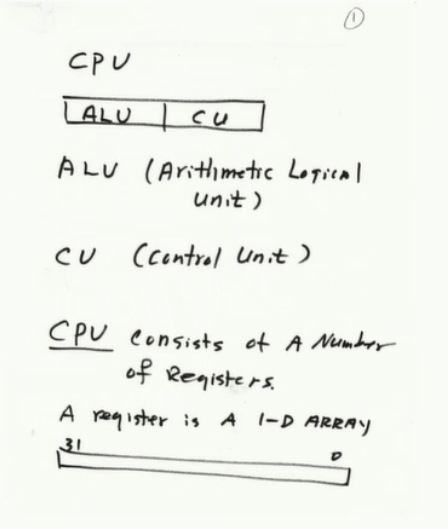 1
CPU
ALU | CU
ALU (Arithmetic Logical
Unit)
CU (Control Unit)
CPU Consists of A Number
of Registers.
A register is A 1-D ARRAY
31 0